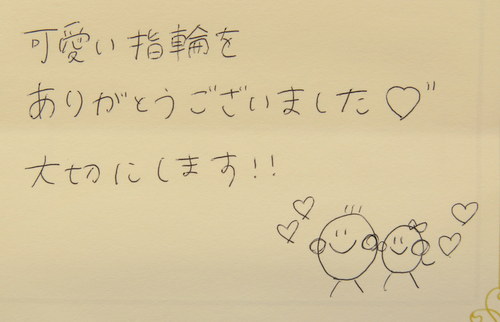 可愛い指輪を
ありがとうございました♡"
大切にします!!